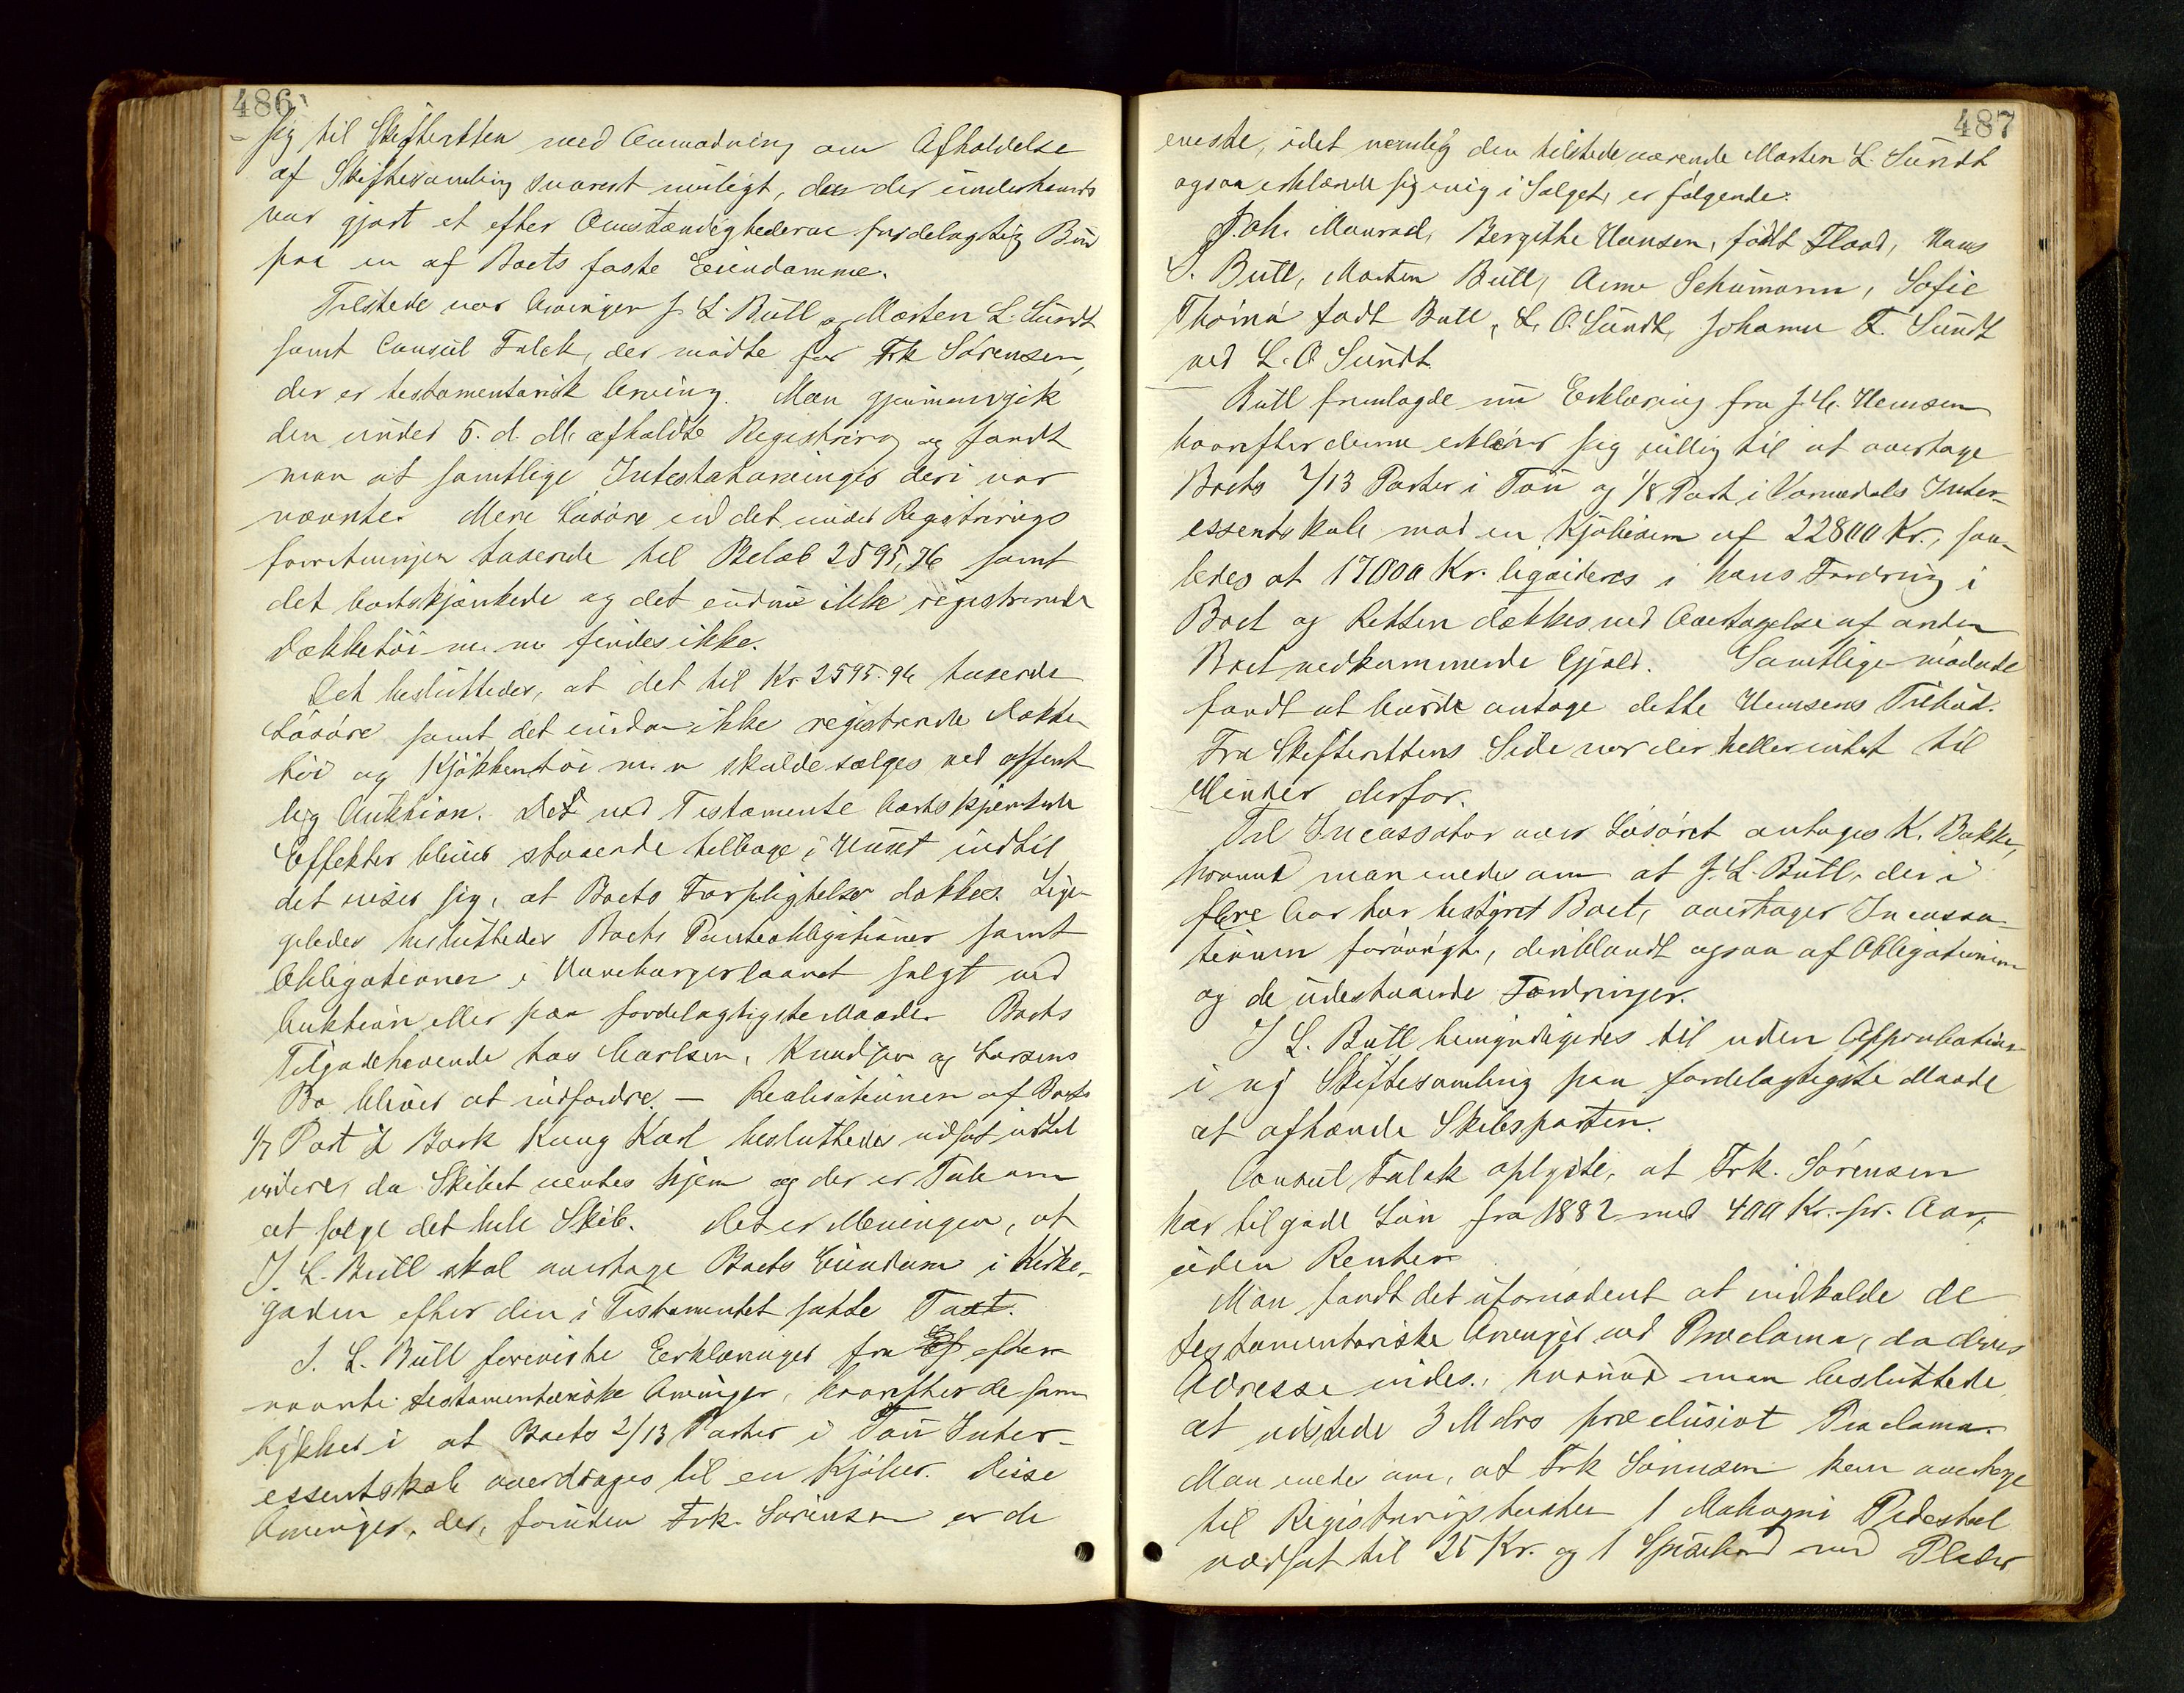 486
sig til Skifteretten med Anmodning om Afholdelse
af Skiftesamling snarest muligt, da der underhaands
var gjort et efter Omstændighederne fordelagtig Bud
paa en af Boets faste Eiendomme.
Tilstede var Arvinger J. L. Bull og Morten L. Sundt
samt Consul Falck, der mødte for Frk Sørensen,
der er testamentarisk Arving. Man gjennemgik
den under 5. d. M. afholdte Registrering og fandt
man at samtlige Intestatarvinger deri var
nævnte. Mere Løsøre end det under Registrerings
forretningen taxerede til Beløb 2595,96 samt
det bortskjænkede og det endnu ikke registrerede
Dækketøi m. m. findes ikke.
Det besluttedes, at det til Kr. 2595.96 taxerede
Løsøre samt det endnu ikke registrerede Dække
tøi og Kjøkkentøi m. v skulde sælges ved offent
lig Auktion. Det ved Testamente bortskjænkede
Effekter bliver staaende tilbage i Huset indtil
det viser sig, at Boets Forpligtelser dækkes. Lige
gledes besluttedes Boets Panteobligationer samt
Obligationer i laanet solgt ved
Auktion eller paa fordelagtigste Maade. Boets
Tilgodehavende hos Carlsen, Knudsen og Larsens
Bo bliver at indfordre. — Realisationen af Boets
1/7 Part i Bark Kung Karl besluttedes udsat indtil
videre, da Skibet ventes hjem og der er Tale om
at sælge det hele Skib. Det er Meningen, at
J. L. Bull skal overtage Boets Eiendom i Kirke-
gaden efter den i Testamentet satte Taxt.
J. L. Bull foreviste Erklæringer fra efter
nævnte testamentariske Arvinger, hvorefter de sam
tykker i at Boets 2/13 Parter i Tou Inter-
essentskab overdrages til en Kjøber. Disse
Arvinger, der, foruden Frk. Sørensen er de
487
eneste, idet nemlig den tilstedeværende Morten L. Sundt
ogsaa erklærede sig enig i Salget, er følgende:
Joh. Monrad, Bergithe Hansen, født Flood, Hans
S. Bull, Morten Bull, Anna Schumann, Sofie
født Bull, L. O. Sundt, Johanne T. Sundt
ved L. O Sundt.
Bull fremlagde nu Erklæring fra J. C. Hemsen
hvorefter denne erklærer sig villig til at overtage
Boets 2/13 Parter i Tou og 1/8 Part i Inter-
essentskab mod en Kjøbesum af 22800 Kr., saa-
ledes at 17000 Kr. liqvideres i hans Fordring i
Boet og Resten dækkes ved Overtagelse af anden
Boet vedkommende Gjæld. Samtlige mødende
fandt at burde antage dette Hemsens Tilbud.
Fra Skifterettens Side var der heller intet til
Hinder derfor.
Til Incassator over Løsøret antoges K. Bakke,
hvorved man enedes om at J. L. Bull, der i
flere Aar har bestyret Boet, overtager Incassa-
tionen forøvrigt, deriblandt ogsaa af Obligationerne
og de udestaaende Fordringer.
J L. Bull bemyndigedes til uden Approbation
i ny Skiftesamling paa fordelagtigste Maade
at afhænde Skibsparten.
Consul Falck oplyste, at Frk. Sørensen
har tilgode Løn fra 1882 med 400 Kr. pr. Aar,
uden Renter
Man fandt det ufornødent at indkalde de
testamentariske Arvinger ved Proclama, da deres
Adresse vides, hvorved man besluttede
at udstede 3 Mdrs præclusivt Proclama.
Man enedes om, at Frk Sørensen kan overtage
til Registreringstaxten 1 Mahogni Pedestal
værdsat til 25 Kr. og 1 Spisebord med Plader